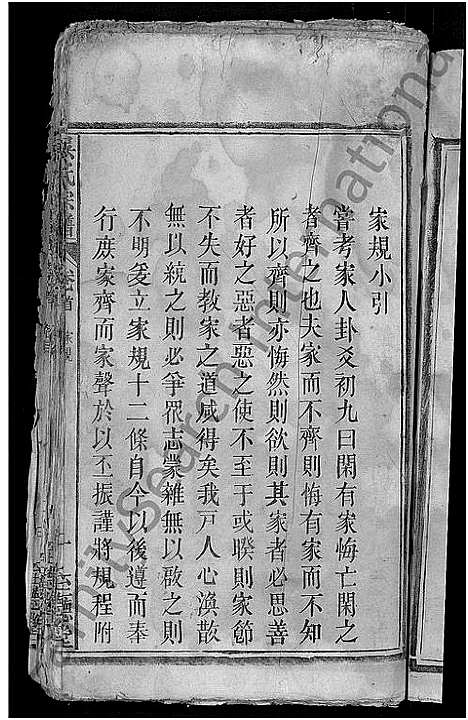 家規小引
嘗考家人卦爻初九曰閑有家悔亡閑之
者齊之也夫家而不齊則悔有家而不知
所以齊則亦悔然則欲則其家者必思善
者好之惡者惡之使不至于或睽則家節
不失而教家之道咸得矣我戸人心渙散
無以統之則必爭眾志蒙雜無以啟之則
不明爰立家規十二條自今以後遵而奉
行庻家齊而家聲於以丕振謹將規程附
氏宗譜
卷首
FamilySearch International